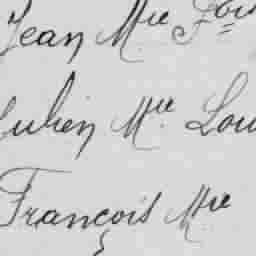 Jean Mie Fois
Julien Mie Lou
François Mie